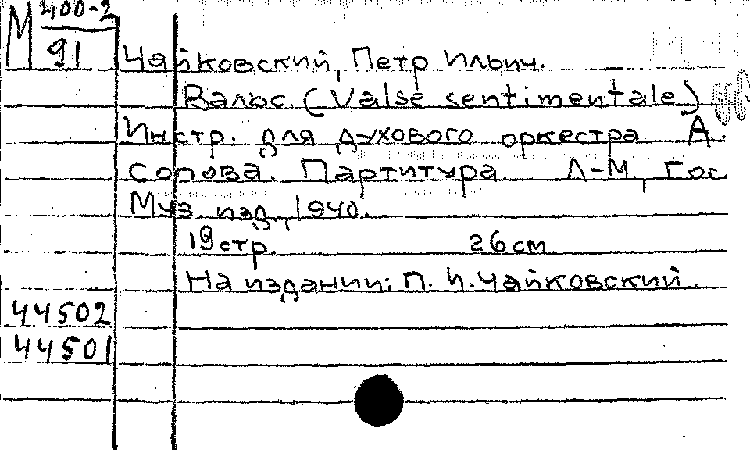 М 400-2
91
Чайковский, Петр Ильич.
Вальс (Valse sentimentale)
Инстр. для духового оркестра А.
Сопова. Партитура Л-М, Гос
Муз. изд., 1940.
19 стр. 26 см
На издании: П. И. Чайковский.
44502
44501